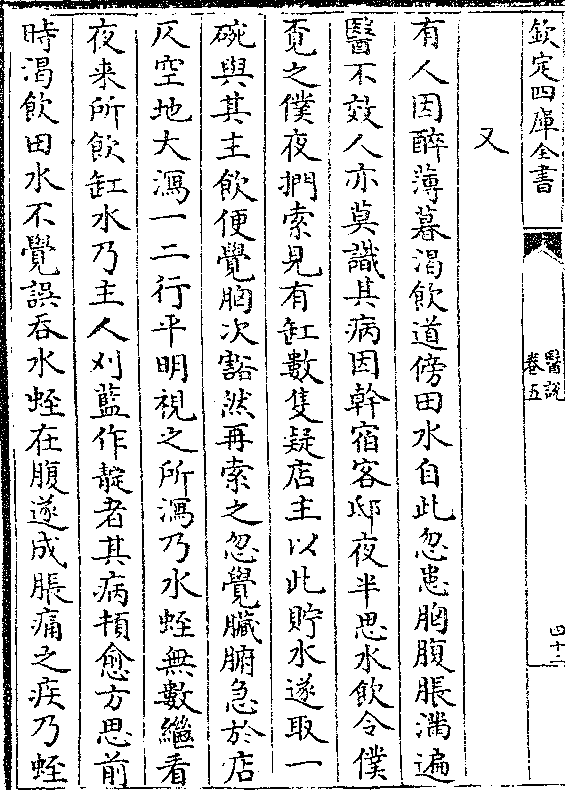 欽定四庫全書
醫說
卷五
四十二
又
有人因醉薄暮渴飲道傍田水自此忽患胸腹脹滿遍
醫不效人亦莫識其病因幹宿客邸夜半思水飲令僕
覔之僕夜捫索見有缸數隻疑店主以此貯水遂取一
碗與其主飲便覺胸次豁然再索之忽覺臟腑急於店
仄空地大瀉一二行平明視之所瀉乃水蛭無數繼看
夜来所飲缸水乃主人刈藍作靛者其病頓愈方思前
時渴飲田水不覺誤吞水蛭在腹遂成脹痛之疾乃蛭